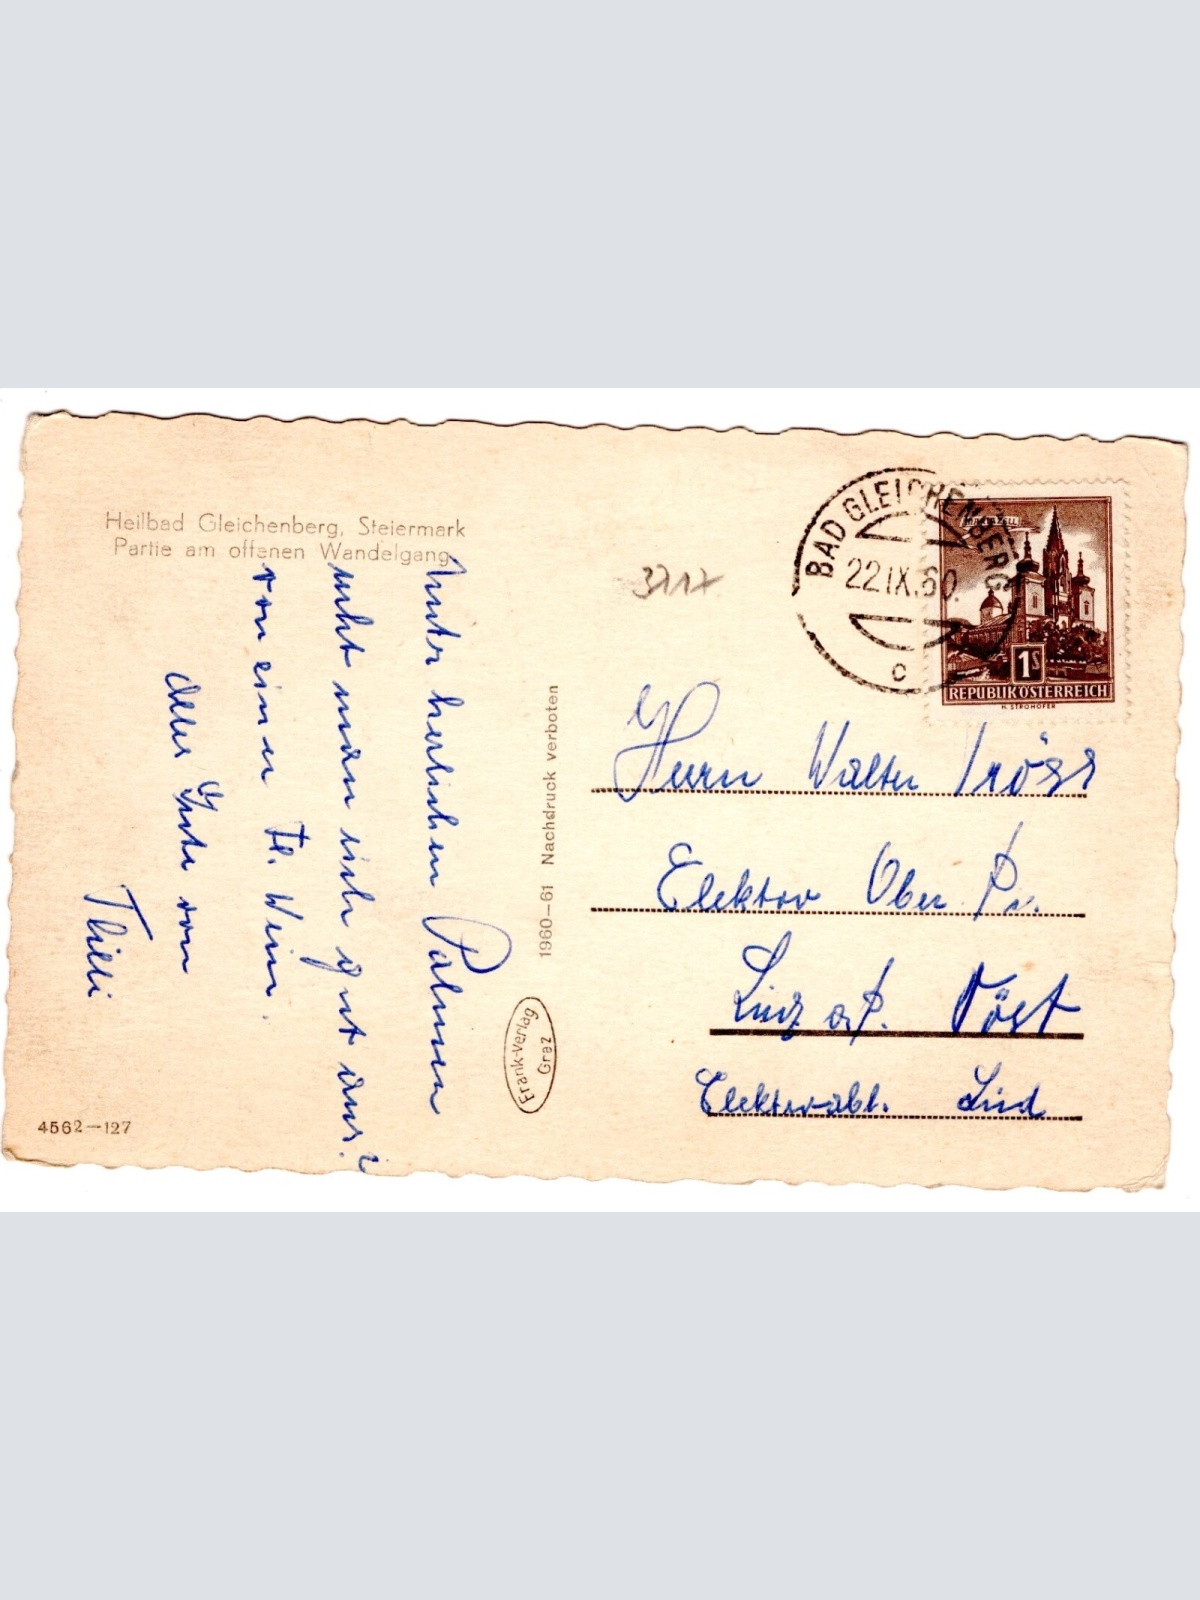 Heilbad Gleichenberg, Steiermark
Partie am offenen Wandelgang
Unter herlichen Palmen
ruht man sich gut aus!
von einen Fl. Wein.
Alles Gute von
4562—127
1960—61 Nachdruck verboten
Frank-Verlag
Graz
3717
BAD GLEICHENBERG
22.IX.60.
c
MARIAZELL
1S
REPUBLIK ÖSTERREICH
H. STROHOFER
Herrn Walter
Elektro Ober
Linz a/ Vöst
Elektroabt. Linz